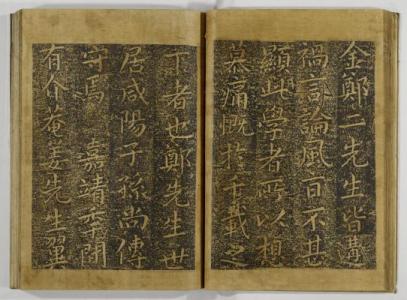 金鄭二先生皆遘
禍言論風旨不甚
顯此學者所以想
慕痛慨於千載之
下者也鄭先生世
居咸陽子孫尚傳
守焉 嘉靖秊間
有介菴姜先生翼